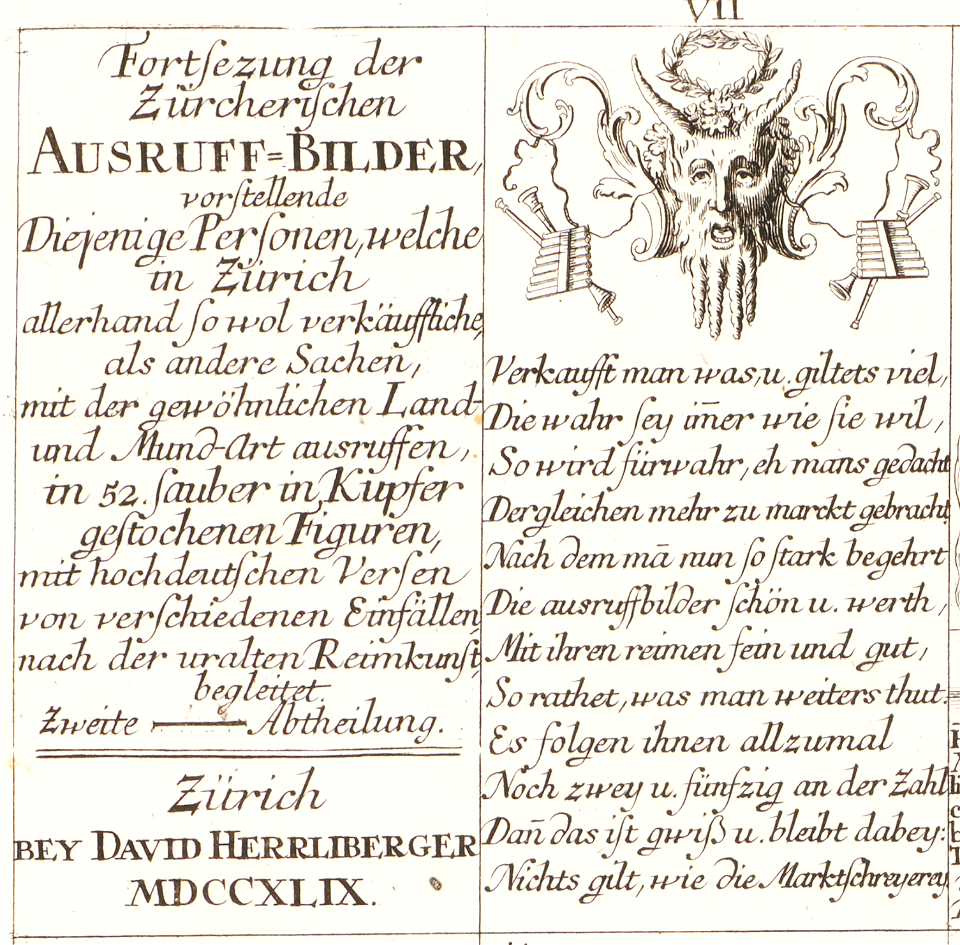 VII
Fortſezung der
Zürcheriſchen
AUSRUFF=BILDER,
vorſtellende
Diejenige Perſonen, welche
in Zürich
allerhand ſo wol verkäuffliche,
als andere Sachen,
mit der gewöhnlichen Land-
und Mund-Art ausruffen,
in 52. ſauber in Kupfer
geſtochenen Figuren,
mit hochdeutſchen Verſen
von verſchiedenen Einfällen,
nach der uralten Reimkunſt,
begleitet.
Zweite — Abtheilung.
Zürich
BEY DAVID HERRLIBERGER
MDCCXLIX.
Verkaufft man was, u. giltets viel,
Die wahr ſey im̄er wie ſie wil,
So wird fürwahr, eh mans gedacht
Dergleichen mehr zu marckt gebracht.
Nach dem mā nun ſo ſtark begehrt
Die ausruffbilder ſchön u. werth,
Mit ihren reimen fein und gut,
So rathet, was man weiters thut:
Es folgen ihnen allzumal
Noch zwey u. fünfzig an der Zahl
Dan̄ das iſt gwiß u. bleibt dabey:
Nichts gilt, wie die Marktſchreyerey.